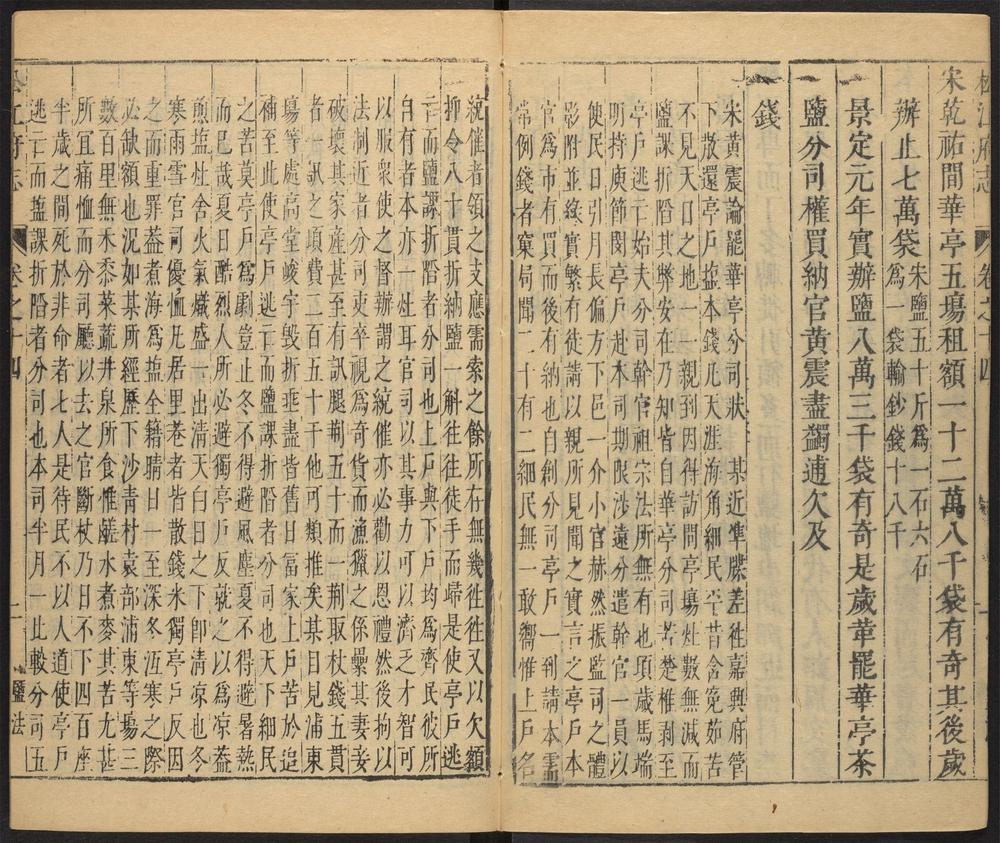 松江府志
卷之十四
宋乾祐間華亭五塲租額一十二萬八千袋有奇其後歲
辦止七萬袋宋鹽五十斤爲一石六石
爲一袋輸鈔錢十八千
景定元年實辦鹽八萬三千袋有奇是歲革罷華亭茶
鹽分司權買納官黃震盡蠲逋欠及
錢
宋黃震論罷華亭分司狀　某近準牒差徃嘉興府管
下散還亭戶塩本錢凡天涯海角細民平昔含寃茹苦
不見天日之地一一親到因得訪問亭塲灶數無減而
鹽課折閱其弊安在乃知皆自華亭分司苦楚椎剥至
亭戶逃亡始夫分司幹官祖宗法所無有也項歳馬瑞
明持庾節閔亭戶赴本司期限涉遠分遣幹官一員以
使民日引月長偏方下邑一介小官赫然振監司之體
影附並緣實繁有徒請以親所見聞之實言之亭戶本
官爲市有買有納也自創分司亭戶一到請本需
常例錢者窠局聞二十有二細民無一敢嚮惟上戶名
統催者領之支應需索之餘所存無幾徃徃又以欠額
抑令八十貫折納鹽一斛徃徃徒手而歸是使亭戶逃
亡而鹽課折閱者分司也上戶與下戶均爲齊民彼所
自有者本亦一灶耳官司以其事力可以濟乏才智可
以服衆使之督辦謂之統催亦必勸以恩禮然後拘以
法制近者分司吏卒視爲奇貨而漁獵之係纍其妻妾
破壞其家産甚至有訊腿荊五十而一荊取杖錢五貫
者一訊之頃費二百五十千他可類推矣其日見浦東
塲等處高堂峻宇毀折垂盡皆舊日富家上戶苦於追
補至此使亭戶逃亡而鹽課折閱者分司也天下細民
之苦莫亭戶爲劇豈止冬不得避風塵夏不得避暑熱
而已哉夏日酷烈人所必避獨亭戶反就之以爲凉葢
煎塩灶舍火氣熾盛一出清天白日之下卽清凉也冬
寒雨雪官司優恤凡居里巷者皆散錢米獨亭戶反因
之而重罪葢煮海爲塩全籍晴日一至深冬沍寒之際
必缺額也況如某所經歷下沙青村袁部浦東等塲三
數百里無禾黍菜蔬井泉所食惟鹹水煮麥其苦尤甚
所宜痛恤而分司廳以去之官斷杖乃日不下四百座
半歲之間死於非命者七人是待民不以人道使亭戶
逃亡而塩課折閱者分司也本司半月一比較分司五
松江府志
卷之十四
二
鹽法